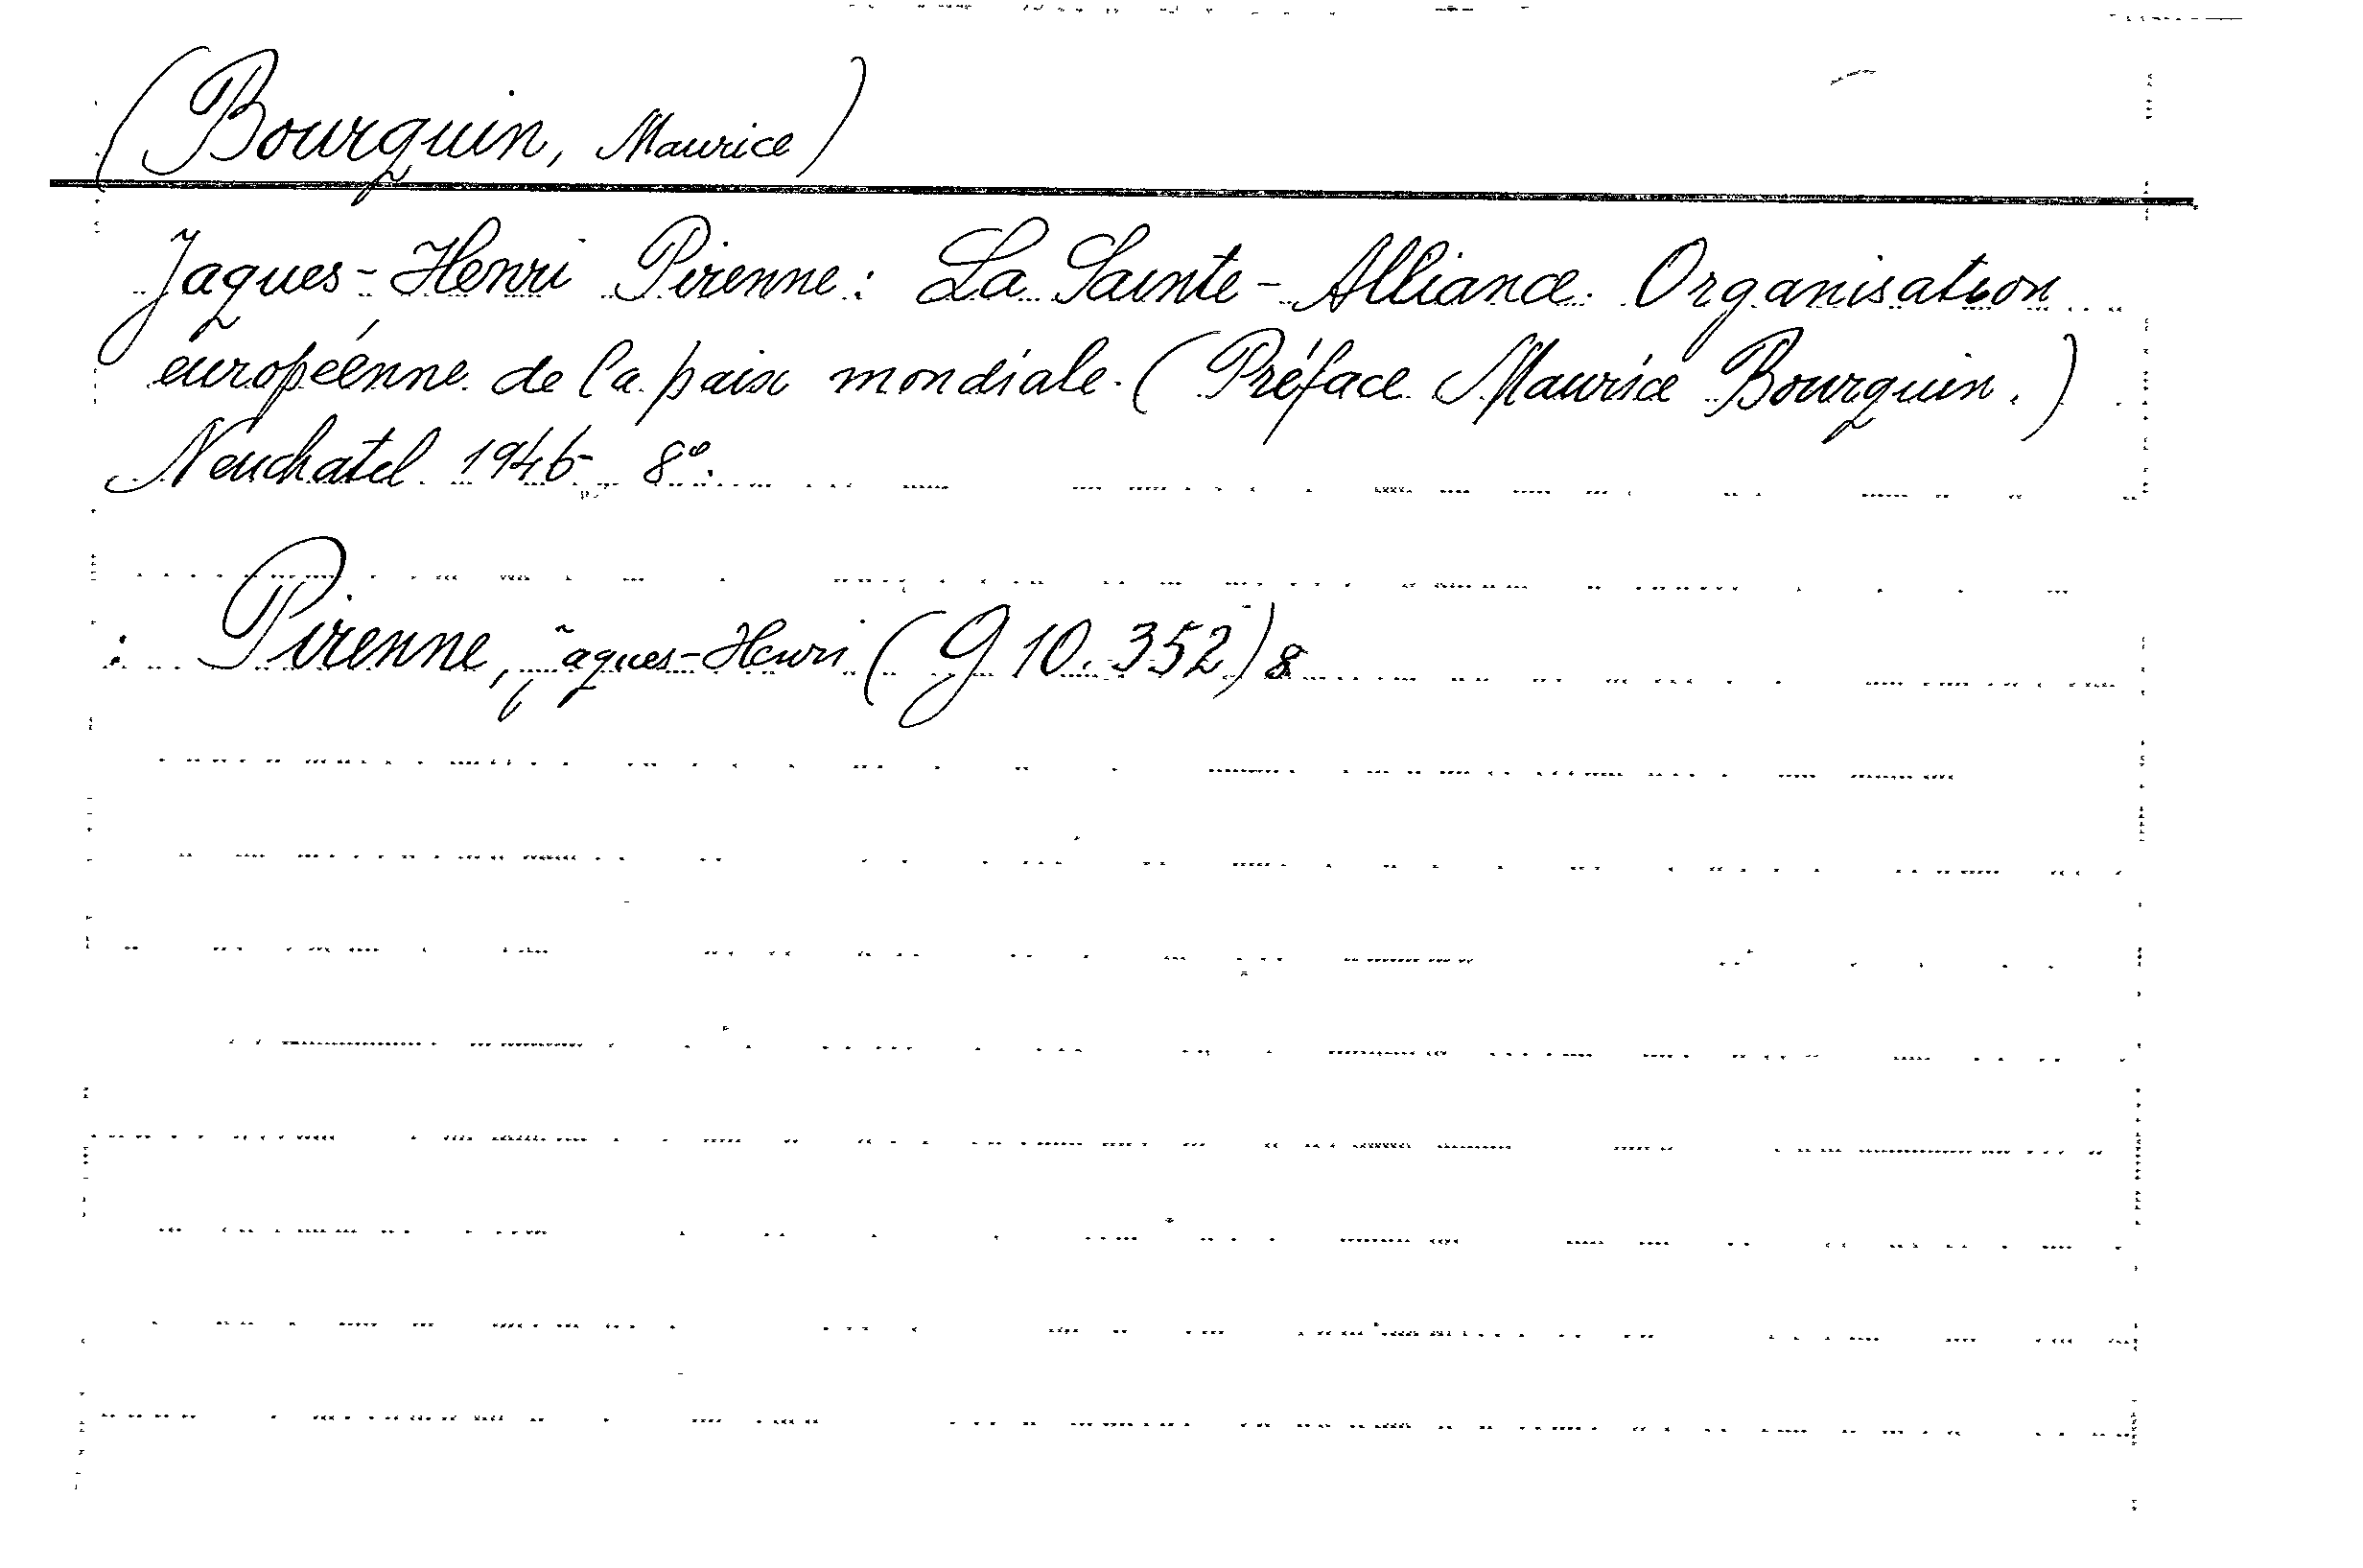 (Bourquin, Maurice)
Jaques-Henri Pirenne: La Sainte-Alliance. Organisation
européenne de la paix mondiale. (Préface Maurice Bourquin.)
Neuchatel 1946- 8°.
: Pirenne, Jaques-Henri (G 10.352) 8